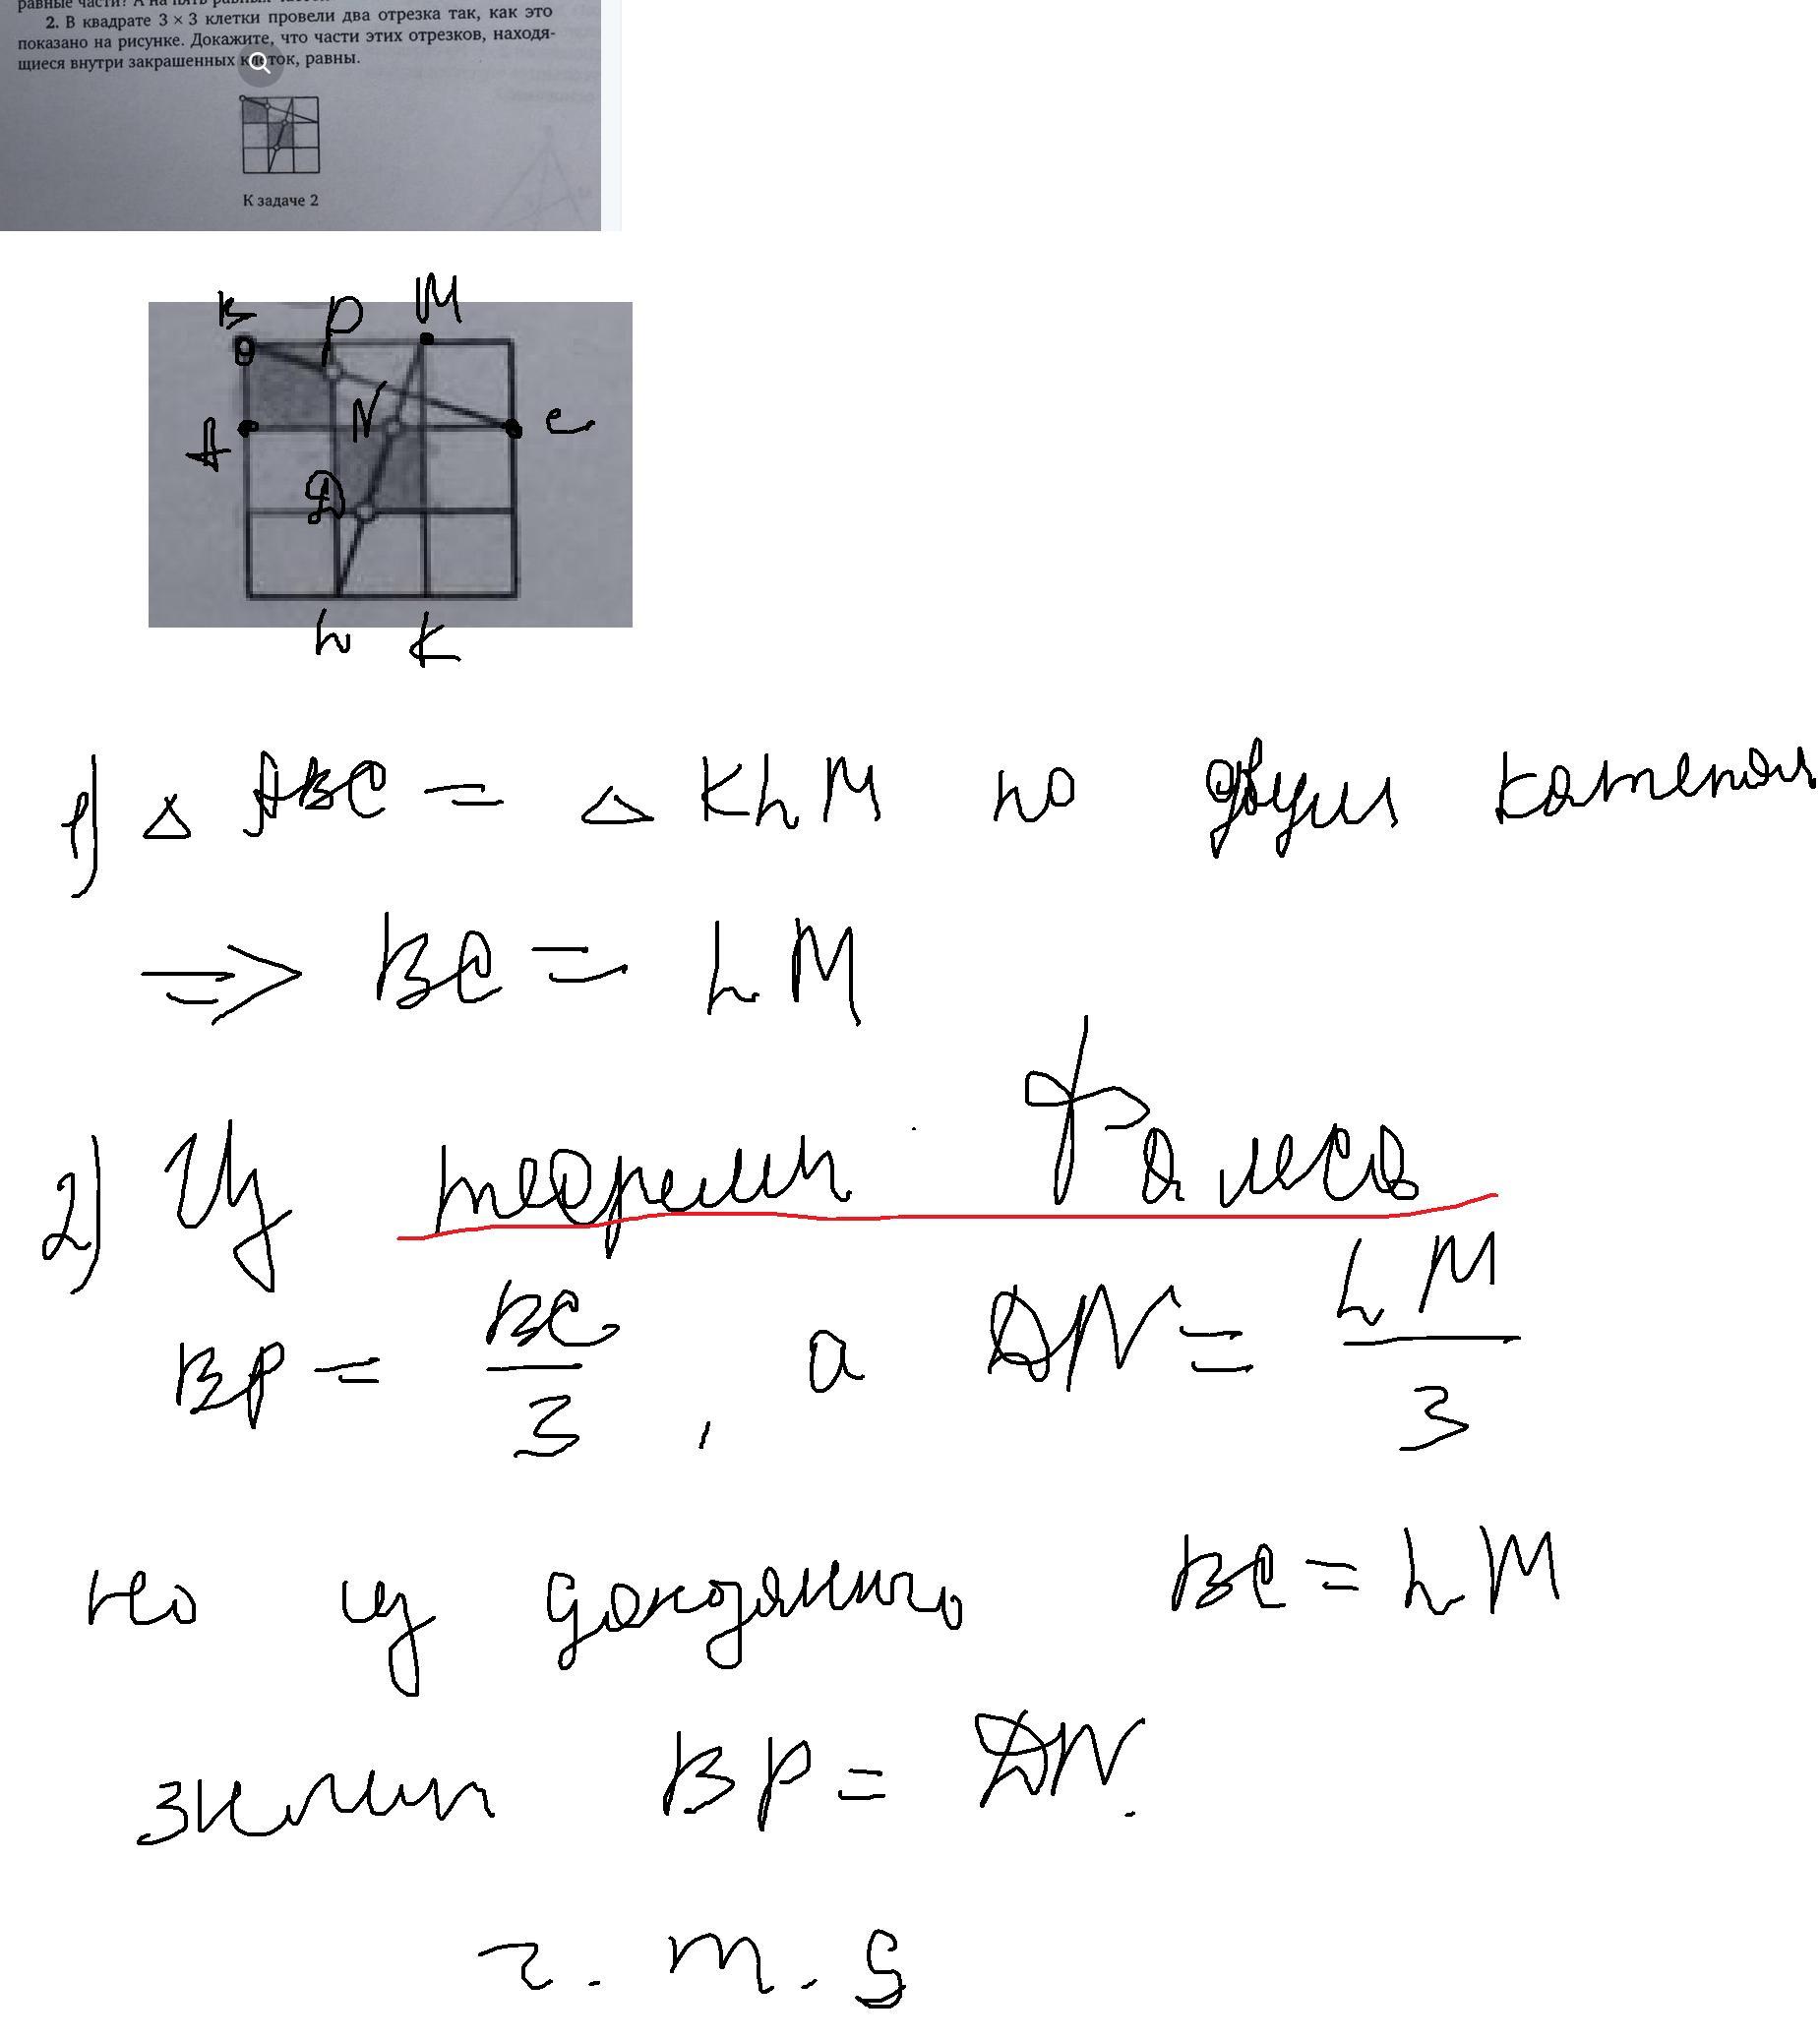 равные части? А на пять равных частей
2. В квадрате 3 × 3 клетки провели два отрезка так, как это
показано на рисунке. Докажите, что части этих отрезков, находя-
щиеся внутри закрашенных клеток, равны.
К задаче 2
B P M
N C
A
D
L K
1) △ ABC = △ KLM по двум катетам
=> BC = LM
2) Из теоремы Фалеса
BP = BC/3, а DN = LM/3
но из доказанного BC = LM
значит BP = DN.
ч. т. д